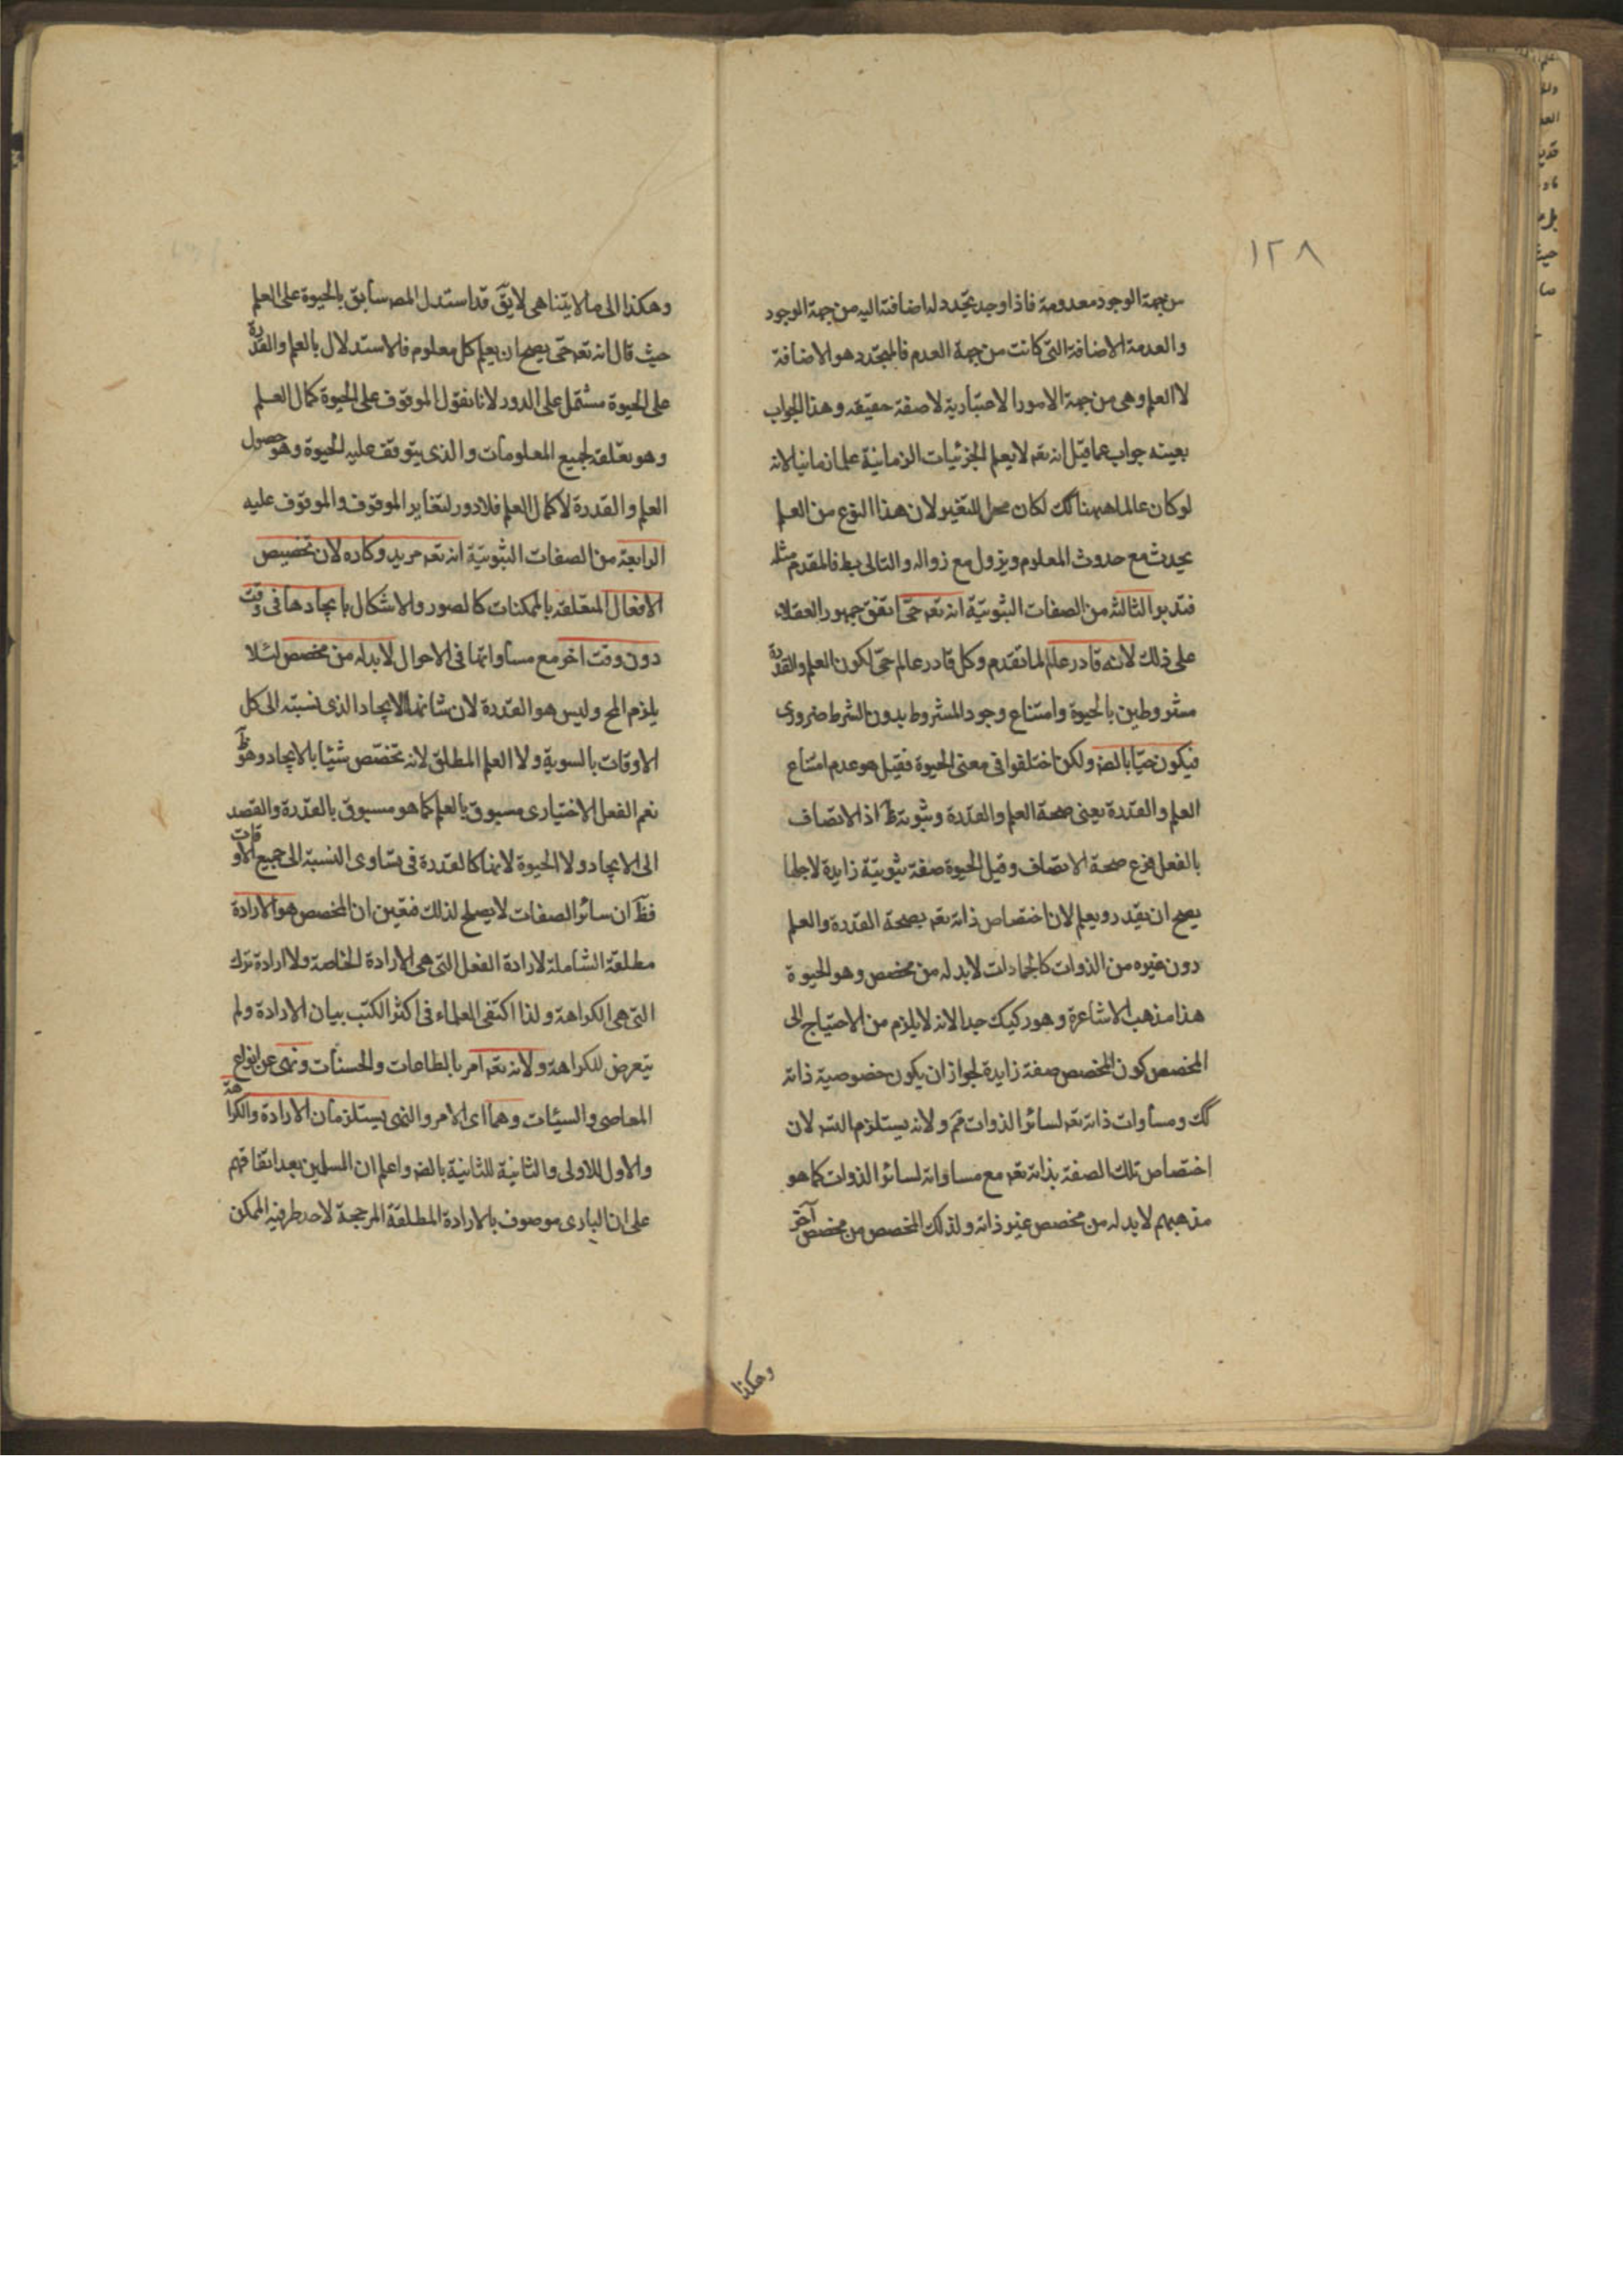 ١٢٨
من جهة الوجود معدومة فاذا وجد يتجدد له اضافة اليه من جهة الوجود
والعدمة الاضافة التى كانت من جهة العدم فالمتجدد هو الاضافة
لا العلم وهى من جهة الامور الاعتبارية لا صفة حقيقه وهذا الجواب
بعينه جواب عما قيل انه تعه لا يعلم الجزئيات الزمانية علما زمانيا لانه
لو كان عالما هيهنا كك لكان محل للتغير لان هذا النوع من العلم
يحدث مع حدوث المعلوم ويزول مع زواله والتالى بط فالمقدم مثله
فتدبر الثالثه من الصفات الثبوتية انه تعه حى اتفق جمهور العقلاء
على ذلك لانه قادر عالم لما تقدم وكل قادر عالم حى لكون العلم والقدرة
مشروطين بالحيوة وامتناع وجود المشروط بدون الشرط ضرورى
فيكون حيّا بالضه ولكن اختلفوا فى معنى الحيوة فقيل هو عدم امتناع
العلم والقدرة يعنى صحة العلم والقدرة وثبوته ظ اذ الاتصاف
بالفعل فرع صحة الاتصاف وقيل الحيوة صفة ثبوتيّة زايدة لاجلها
يصح ان يقدر ويعلم لان اختصاص ذاته تعه بصحة القدرة والعلم
دون غيره من الذوات كالجمادات لابد له من مخصص وهو الحيوة
هذا مذهب الاشاعرة وهو ركيك جدا لانه لا يلزم من الاحتياج الى
المخصص كون المخصص صفة زايدة لجواز ان يكون خصوصية ذاته
كك ومساوات ذاته تعه لسائر الذوات مم ولانه يستلزم التسه لان
اختصاص تلك الصفة بذاته تعه مع مساواته لسائر الذوات كما هو
مذهبهم لابد له من مخصص غير ذاته ولذلك المخصص من مخصص آخر
وهكذا
وهكذا الى ما لا يتناهى لا يقٓ قد استدل المصه سابق بالحيوة على العلم
حيث قال انه تعه حى يصح ان يعلم كل معلوم فالاستدلال بالعلم والقدرة
على الحيوة مشتمل على الدور لانا نقول الموقوف على الحيوة كمال العلم
وهو تعلقه لجميع المعلومات والذى يتوقف عليه الحيوة وهو حصول
العلم والقدرة لا كمال العلم فلا دور لتغاير الموقوف والموقوف عليه
الرابعة من الصفات الثبوتيّة انه تعه مريد وكاره لان تخصيص
الافعال المتعلقه بالممكنات كالصور والاشكال بايجادها فى وقت
دون وقت اخر مع مساواتها فى الاحوال لابد له من مخصص لئلا
يلزم المح وليس هو القدرة لان شانها الايجاد الذى نسبته الى كل
الاوقات بالسوية ولا العلم المطلق لانه تخصّص شيئا بالايجاد وهو ظٓ
نعم الفعل الاختيارى مسبوق بالعلم كما هو مسبوق بالقدرة والقصد
الى الايجاد ولا الحيوة لانها كالقدرة فى تساوى النسبة الى جميع الاوقات
فظٓ ان سائر الصفات لا يصلح لذلك فتعين ان المخصص هو الارادة
مطلقة الشاملة لارادة الفعل التى هى الارادة الخاصة ولا ارادة ترك
التى هى الكراهة ولذا اكتفى العلماء فى اكثر الكتب ببيان الارادة ولم
يتعرض للكراهة ولانه تعه امر بالطاعات والحسنات ونهى عن انواع
المعاصى والسيئات وهما اى الامر والنهى يستلزمان الارادة والكراهة
والاول للاولى والثانية للثانية بالضه واعلم ان المسلمين بعد اتفاقهم
على ان البارى موصوف بالارادة المطلقة المرجحة لاحد طرفيه الممكن